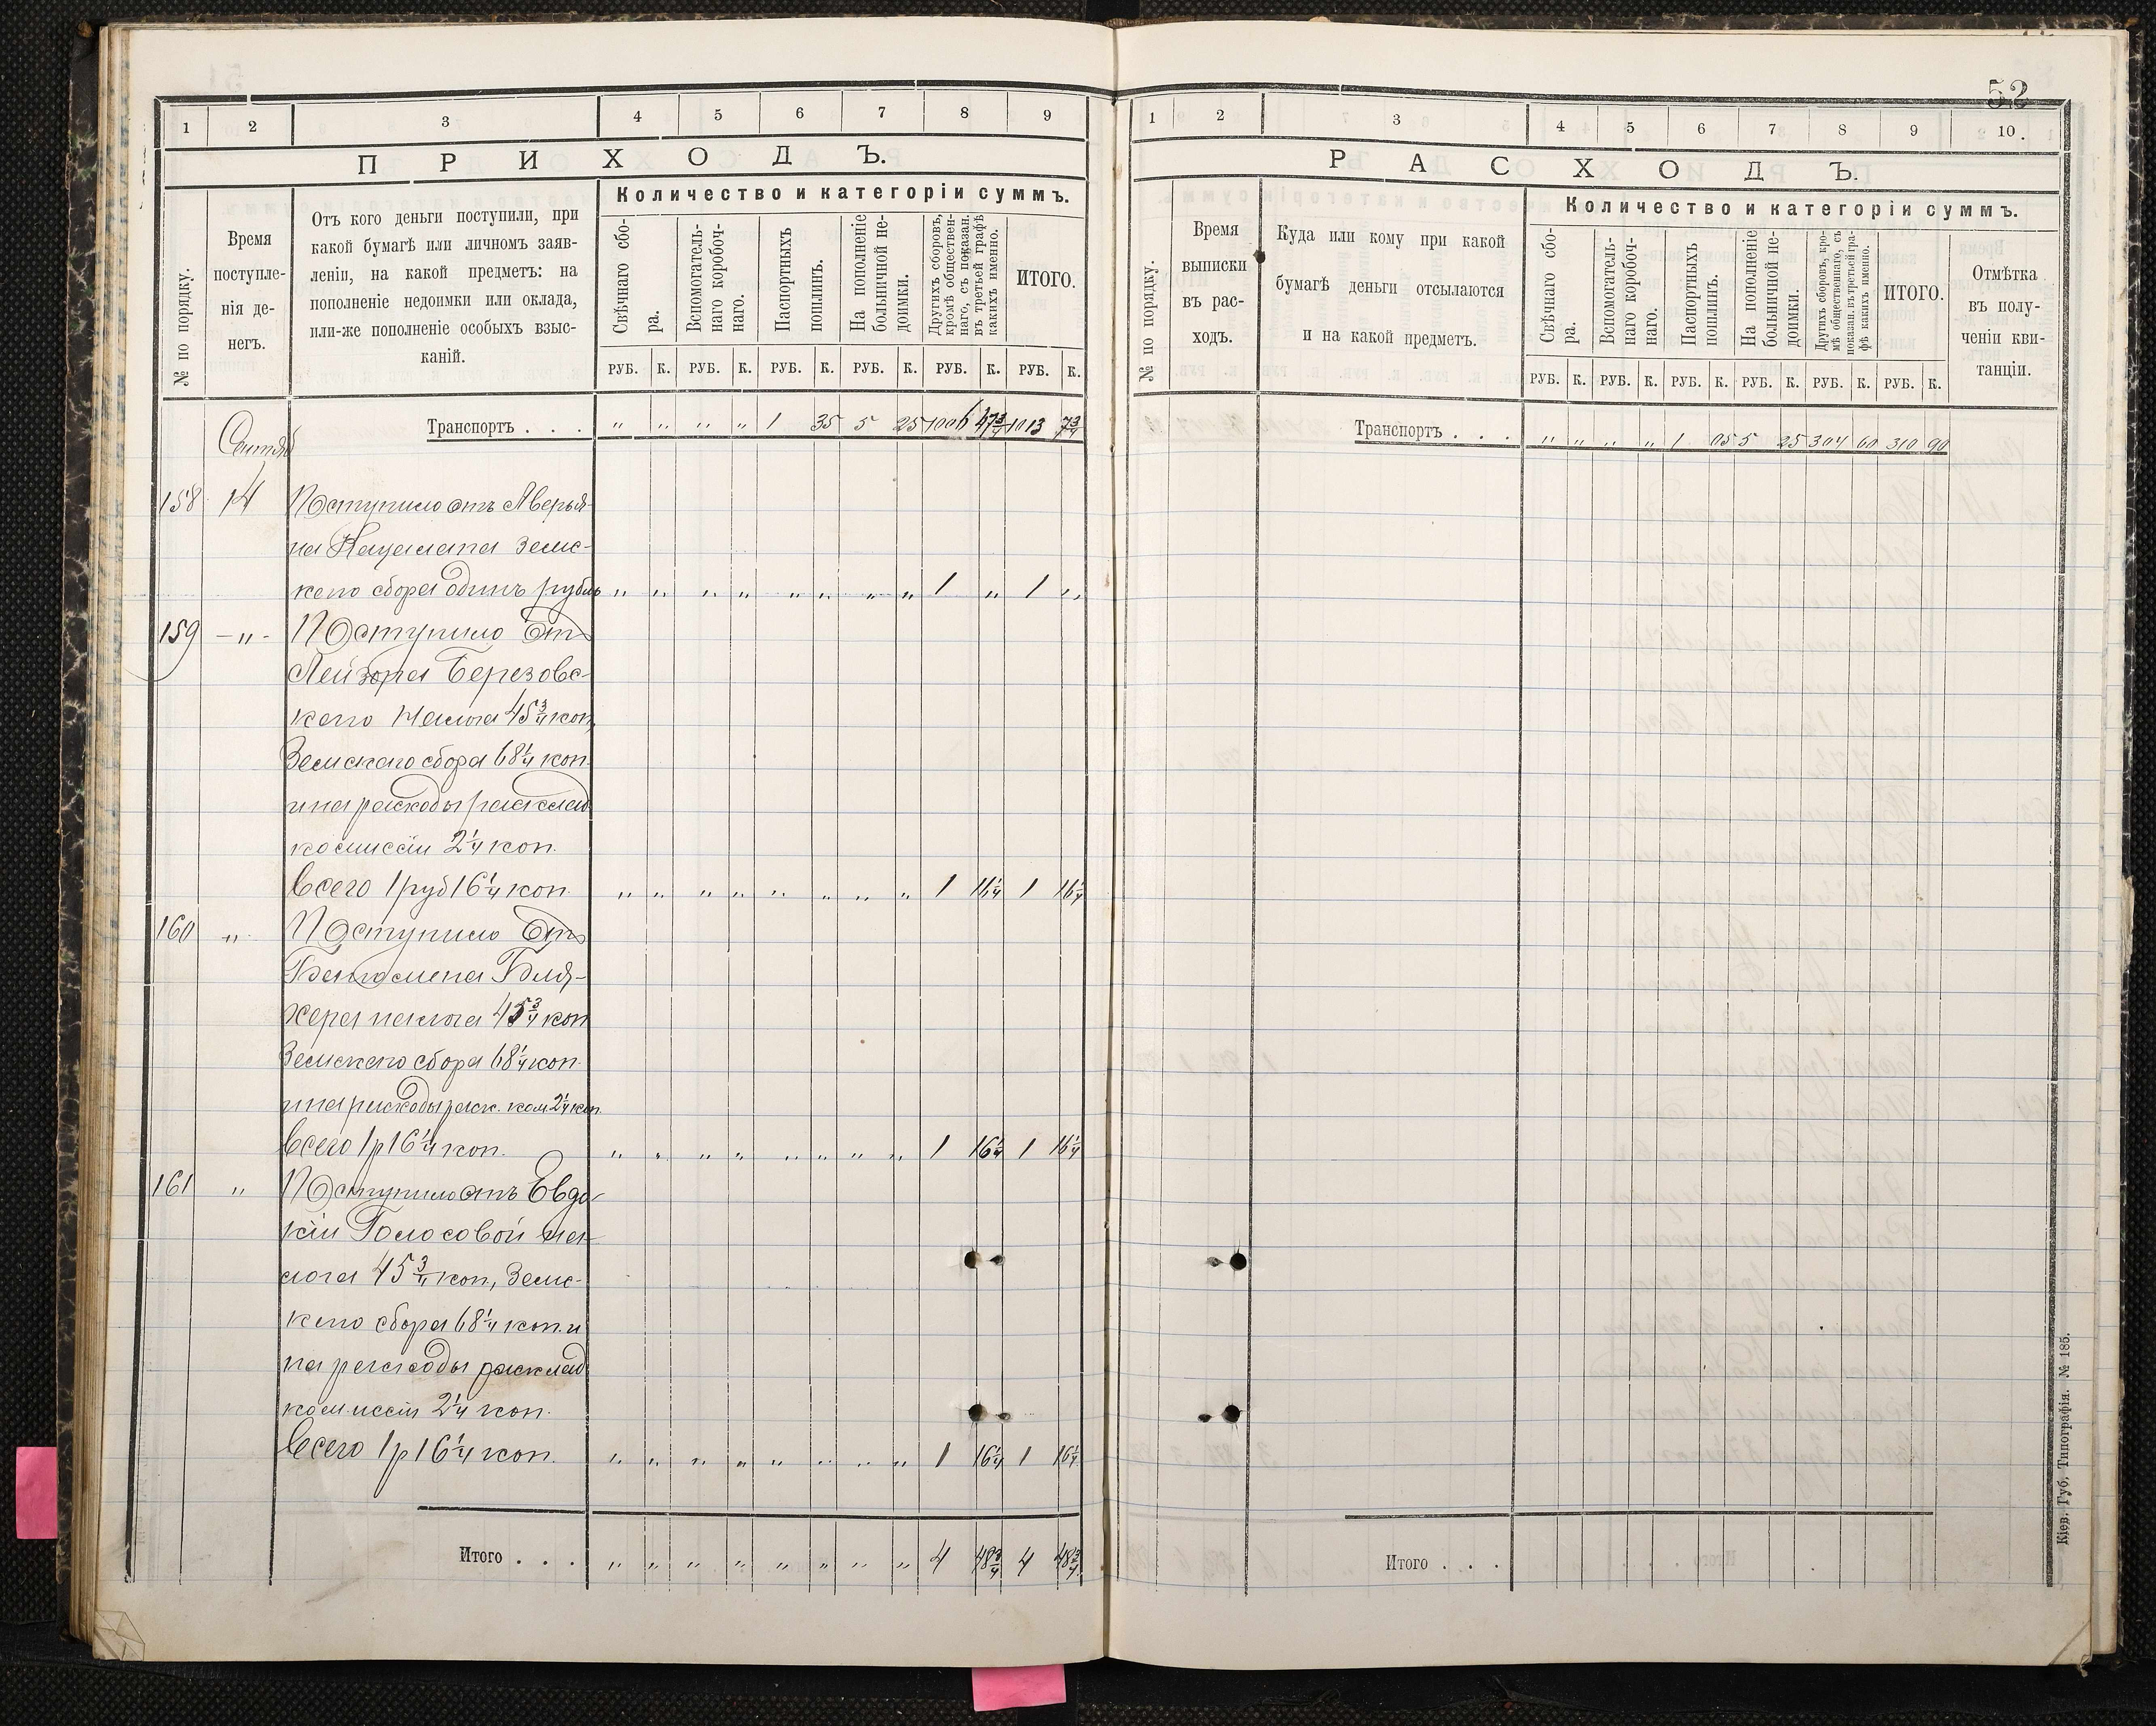 1 2 3 4 5 6 7 8 9
ПРИХОДЪ.
№ по порядку.
Время
поступле-
нія де-
негъ.
Отъ кого деньги поступили, при
какой бумагѣ или личномъ заяв-
леніи, на какой предметъ: на
пополненіе недоимки или оклада,
или-же пополненіе особыхъ взыс-
каній.
Количество и категоріи суммъ.
Свѣчнаго сбо-
ра.
Вспомогатель-
наго коробоч-
наго.
Паспортныхъ
пошлинъ.
На пополненіе
больничной не-
доимки.
Другихъ сборовъ,
кромѣ обществен-
наго, съ показан.
въ третьей графѣ
какихъ именно.
ИТОГО.
РУБ. К. РУБ. К. РУБ. К. РУБ. К. РУБ. К. РУБ. К.
Транспортъ . . . " " " " 1 35 5 25 1006 47 3/4 1013 7 3/4
Сентяб
158 14 Поступило отъ Аверья-
на земс-
каго сбора одинъ рубль " " " " " " " " 1 " 1 "
159 —"- Поступило От
Лейзора Березовс-
каго налога 45 3/4 коп,
Земскаго сбора 68 1/4 коп.
и на расходы расклад
комиссіи 2 1/4 коп.
Всего 1 руб 16 1/4 коп. " " " " " " " " 1 16 1/4 1 16 1/4
160 " Поступило От
Беніомена Бля-
хера налога 45 3/4 коп
Земскаго сбора 68 1/4 коп.
и на расходы раск. ком 2 1/4 коп.
Всего 1 р 16 1/4 коп. " " " " " " " " 1 16 1/4 1 16 1/4
161 " Поступило отъ Евдо-
кіи Голосовой на-
лога 45 3/4 коп, Земс-
каго сбора 68 1/4 коп. и
на расходы расклад
комиссіи 2 1/4 коп.
Всего 1 р 16 1/4 коп. " " " " " " " " 1 16 1/4 1 16 1/4
Итого . . . " " " " " " " " 4 48 3/4 4 48 3/4
52
1 2 3 4 5 6 7 8 9 10.
РАСХОДЪ.
№ по порядку.
Время
выписки
въ рас-
ходъ.
Куда или кому при какой
бумагѣ деньги отсылаются
и на какой предметъ.
Количество и категоріи суммъ.
Свѣчнаго сбо-
ра.
Вспомогатель-
наго коробоч-
наго.
Паспортныхъ
пошлинъ.
На пополненіе
больничной не-
доимки.
Другихъ сборовъ, кро-
мѣ общественнаго, съ
показан. въ третьей гра-
фѣ какихъ именно.
ИТОГО.
Отмѣтка
въ полу-
ченіи кви-
танціи.
РУБ. К. РУБ. К. РУБ. К. РУБ. К. РУБ. К. РУБ. К.
Транспортъ . . . " " " " 1 05 5 25 304 60 310 90
Итого . . .
Кіев. Губ. Типографія. № 185.